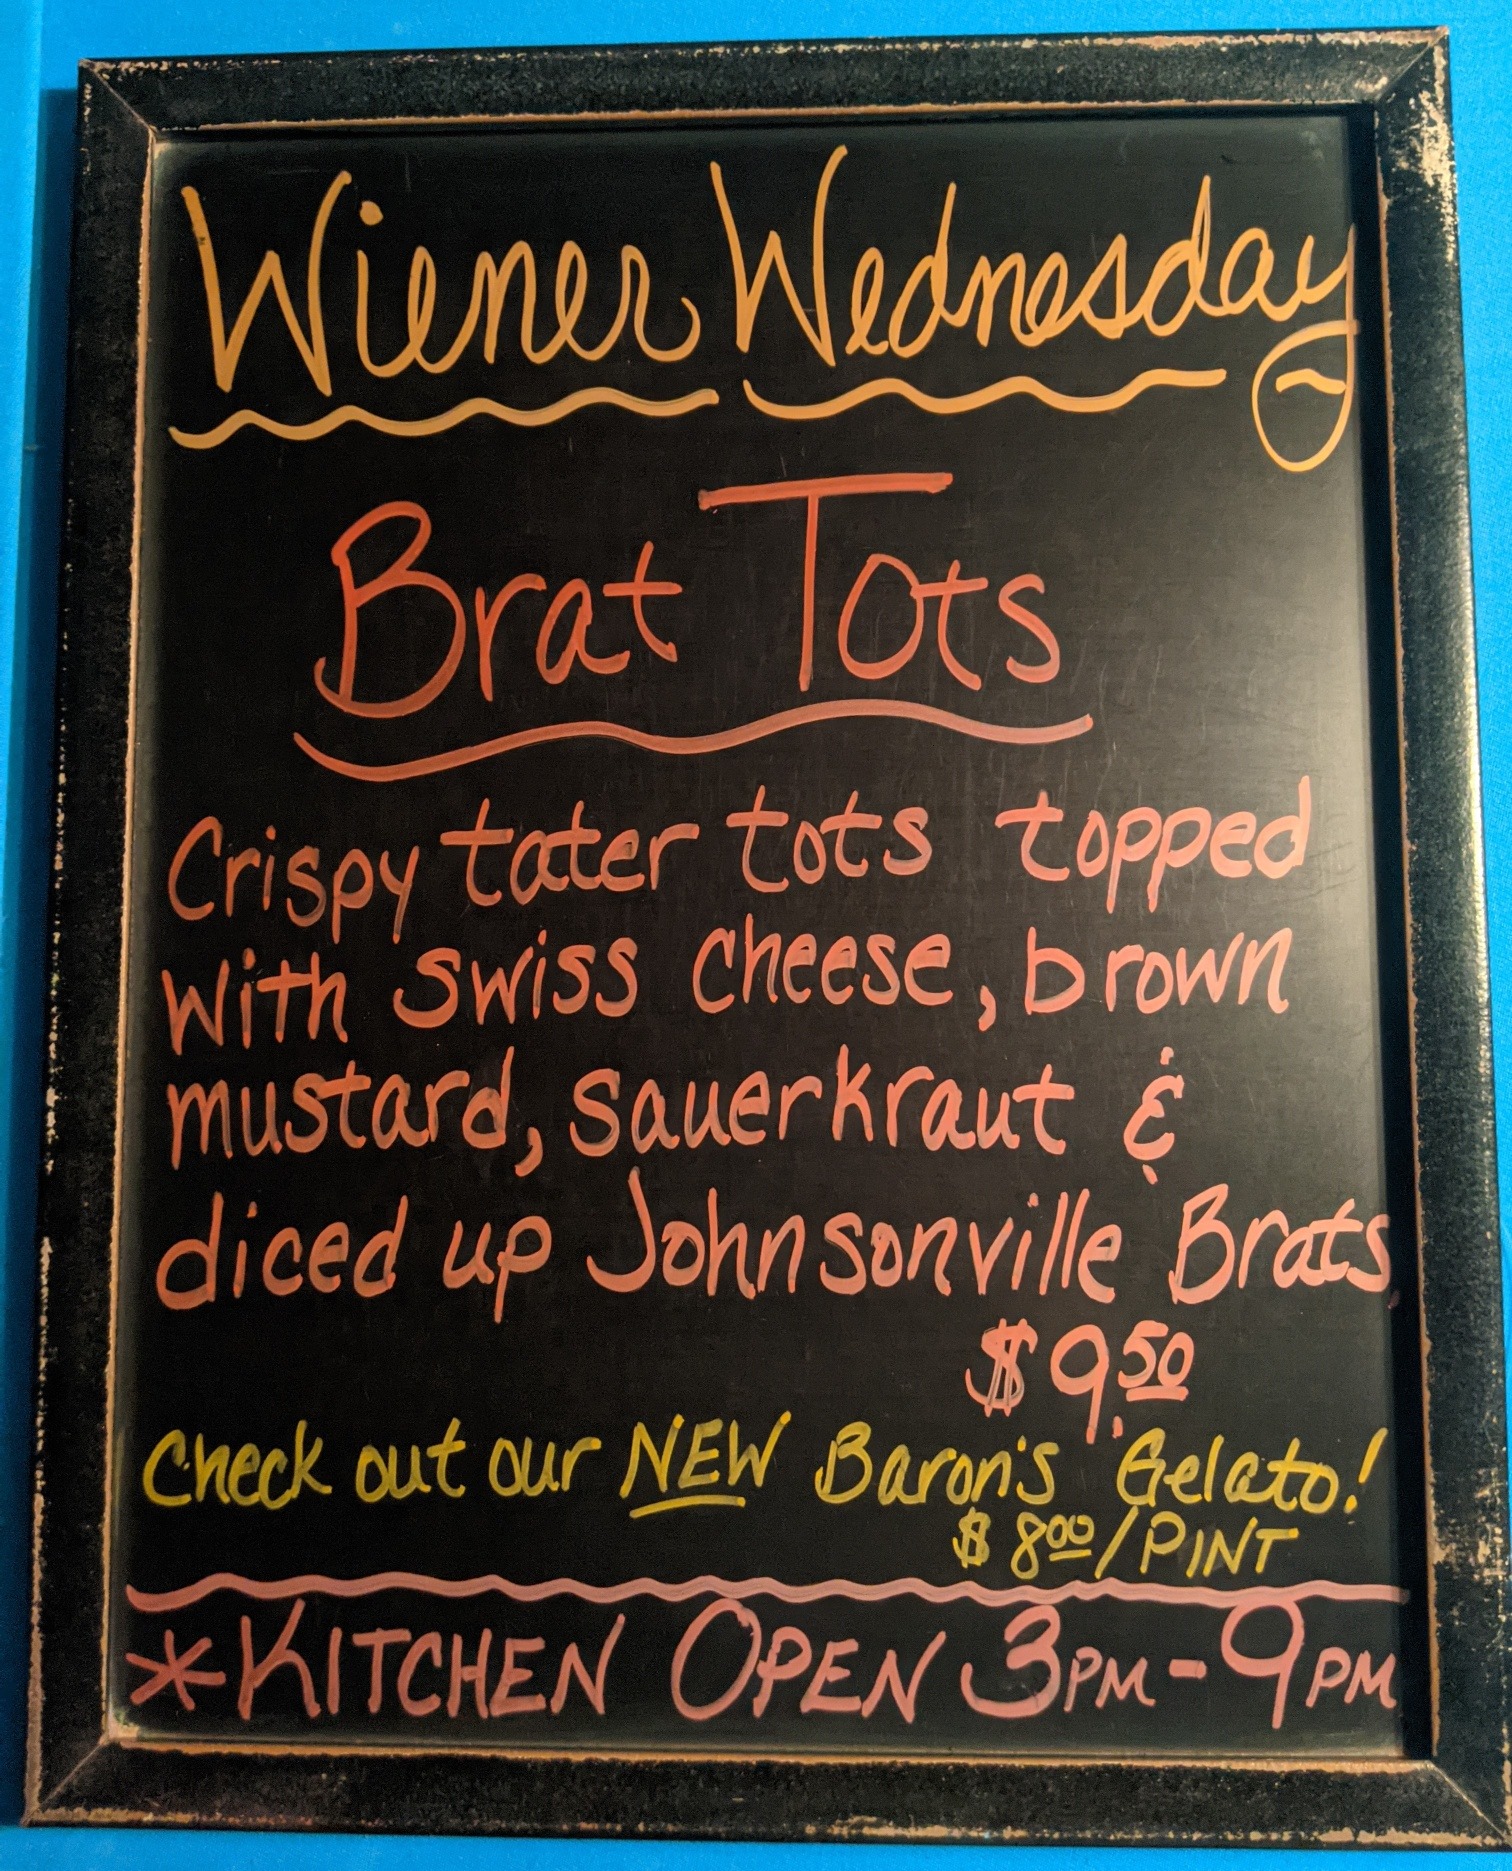 Wiener Wednesday
Brat Tots
Crispy tater tots topped
with swiss cheese, brown
mustard, sauerkraut &
diced up Johnsonville Brats.
$9.50
Check out our NEW Baron's Gelato!
$8.00/PINT
*KITCHEN OPEN 3PM-9PM